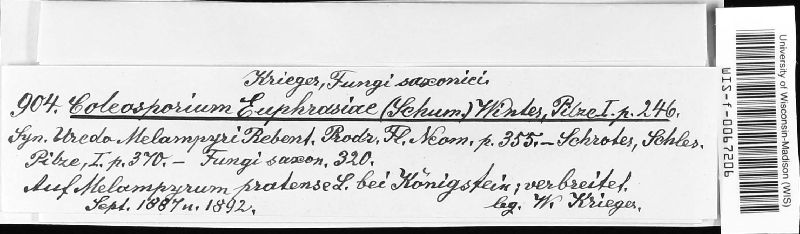 Krieger, Fungi saxonici.
904. Coleosporium Euphrasiae (Schum.) Winter, Pilze I. p. 246.
Syn. Uredo Melampyri Rebent. Prodr. Fl. Neom. p. 355. – Schroter, Schles.
Pilze, I. p. 370. – Fungi saxon. 320.
Auf Melampyrum pratense L. bei Königstein; verbreitet.
Sept. 1887 u. 1892. leg. W. Krieger.
University of Wisconsin-Madison (WIS)
WIS-f-0067206